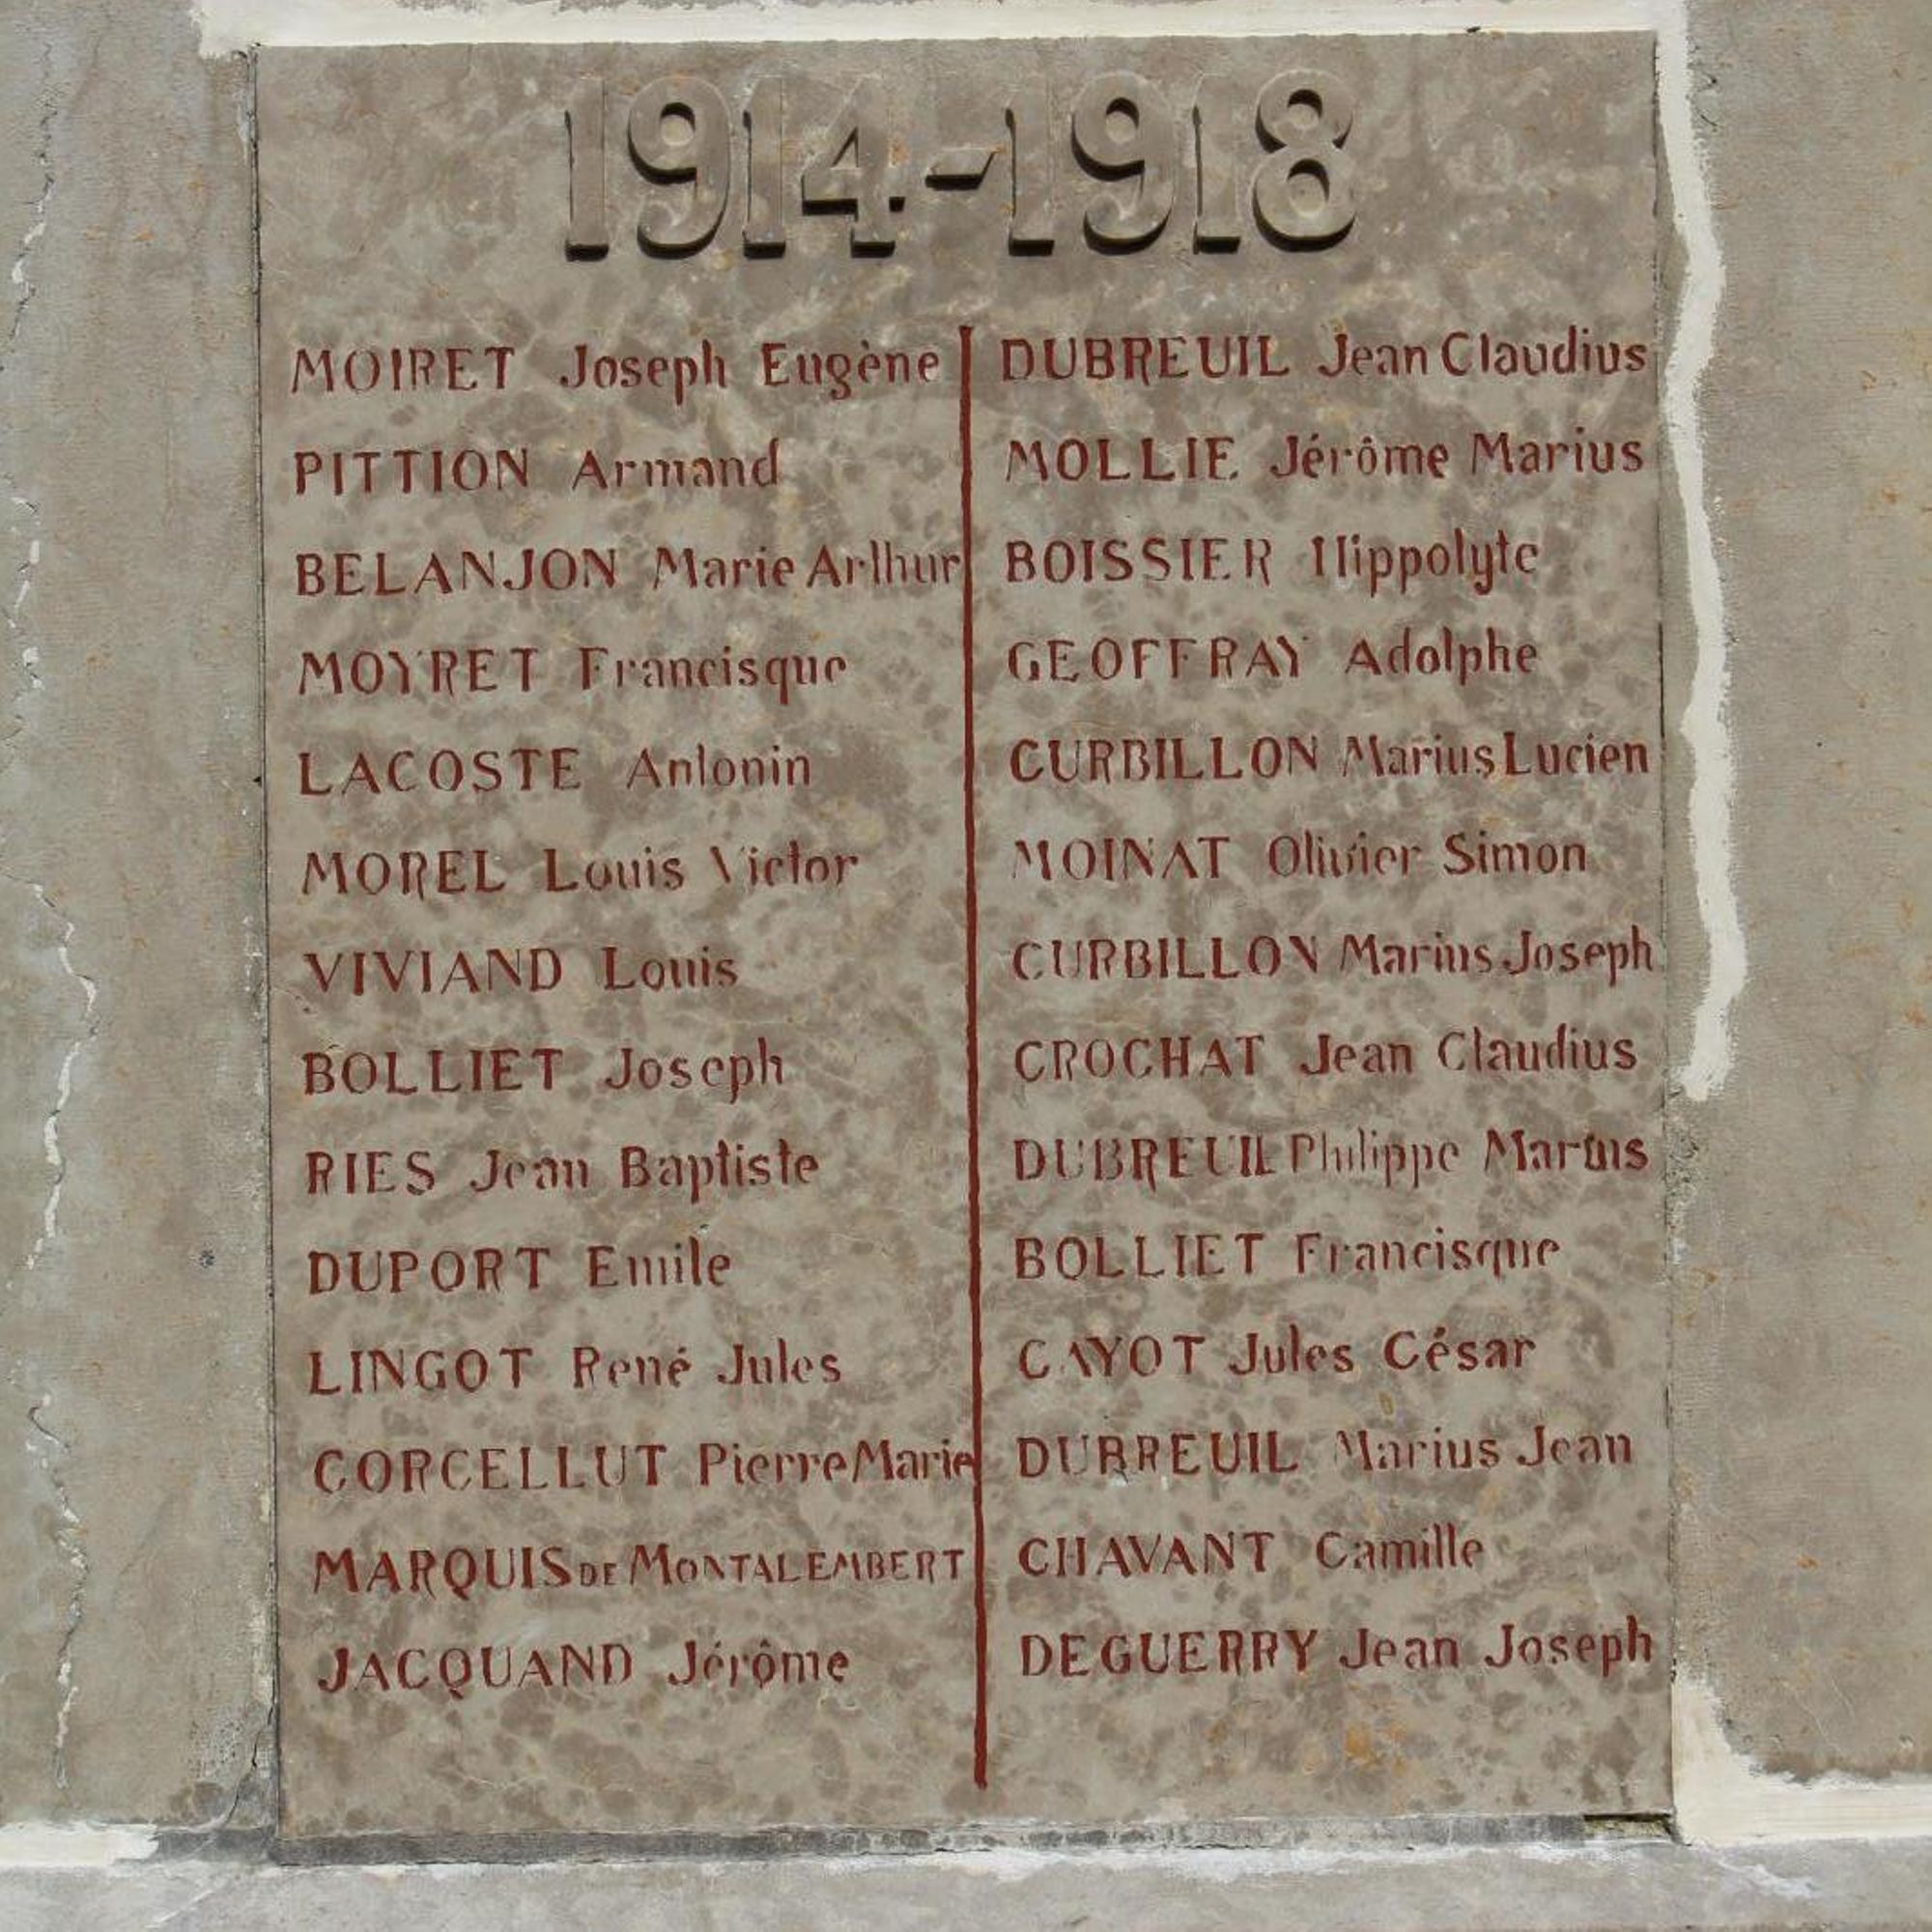 1914-1918
MOIRET Joseph Eugène
PITTION Armand
BELANJON Marie Arthur
MOYRET Francisque
LACOSTE Antonin
MOREL Louis Victor
VIVIAND Louis
BOLLIET Joseph
RIES Jean Baptiste
DUPORT Emile
LINGOT René Jules
CORCELLUT Pierre Marie
MARQUIS DE MONTALEMBERT
JACQUAND Jérôme
DUBREUIL Jean Claudius
MOLLIE Jérôme Marius
BOISSIER Hippolyte
GEOFFRAY Adolphe
CURBILLON Marius Lucien
MOINAT Olivier Simon
CURBILLON Marius Joseph
CROCHAT Jean Claudius
DUBREUIL Philippe Marius
BOLLIET Francisque
CAYOT Jules César
DUBREUIL Marius Jean
CHAVANT Camille
DEGUERRY Jean Joseph